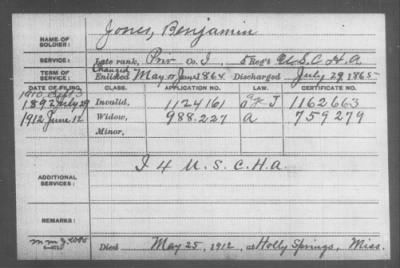 NAME OF SOLDIER: Jones, Benjamin
SERVICE: Late rank, Priv Co. I, 5 Reg't U.S.C.H.A.
TERM OF SERVICE: Enlisted May or June, 1864. Discharged July 29, 1865.
DATE OF FILING. CLASS. APPLICATION NO. LAW. CERTIFICATE NO.
1892 July 29 Invalid, 1124161 J 1162663
1912 June 12 Widow, 988,227 a 759279
Minor,
ADDITIONAL SERVICES: I 4 U.S.C.H.A.
REMARKS:
Died May 25, 1912, at Holly Springs, Miss.